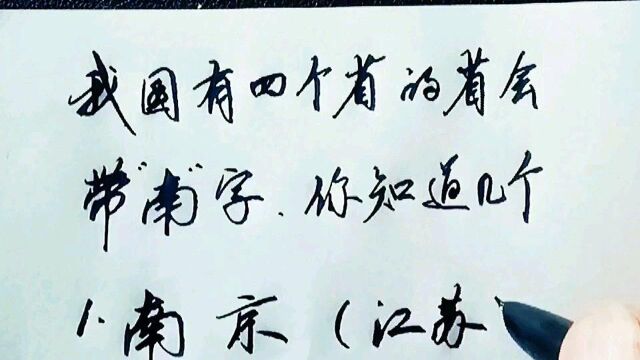 我国有四个省的省会
带"南"字、你知道几个
1.南京(江苏)